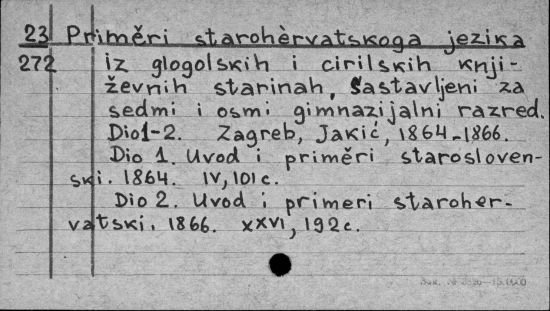 23 Primĕri starohèrvatskoga jezika
272 iz glogolskih i cirilskih knji-
ževnih starinah, Sastavljeni za
sedmi i osmi gimnazijalni razred.
Dio1-2. Zagreb, Jakić, 1864-1866.
Dio 1. Uvod i primĕri starosloven-
ski. 1864. IV, 101 c.
Dio 2. Uvod i primeri staroher-
vatski. 1866. XXVI, 192c.